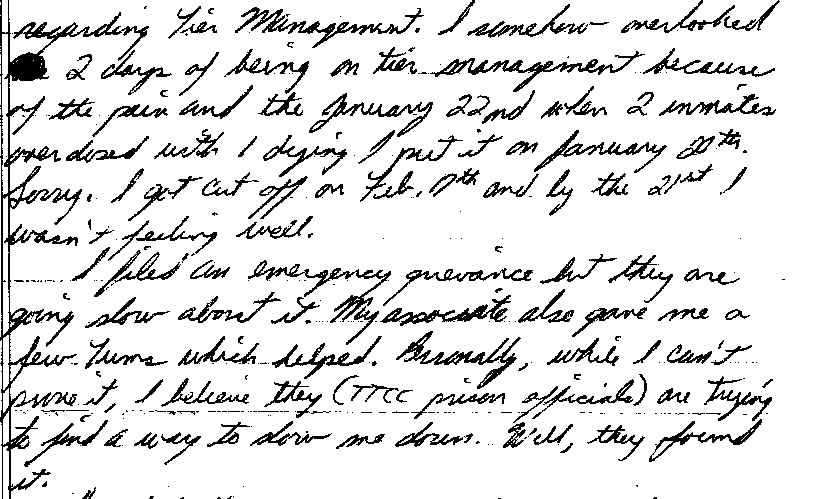 regarding Tier Management. I somehow overlooked
2 days of being on tier management because
of the pain and the January 22nd when 2 inmates
overdosed with 1 dying I put it on January 20th.
Sorry. I got cut off on Feb. 17th and by the 21st I
wasn't feeling well.
I filed an emergency grievance but they are
going slow about it. My associate also gave me a
few Tums which helped. Personally, while I can't
prove it, I believe they (TTCC prison officials) are trying
to find a way to slow me down. Well, they found
it.